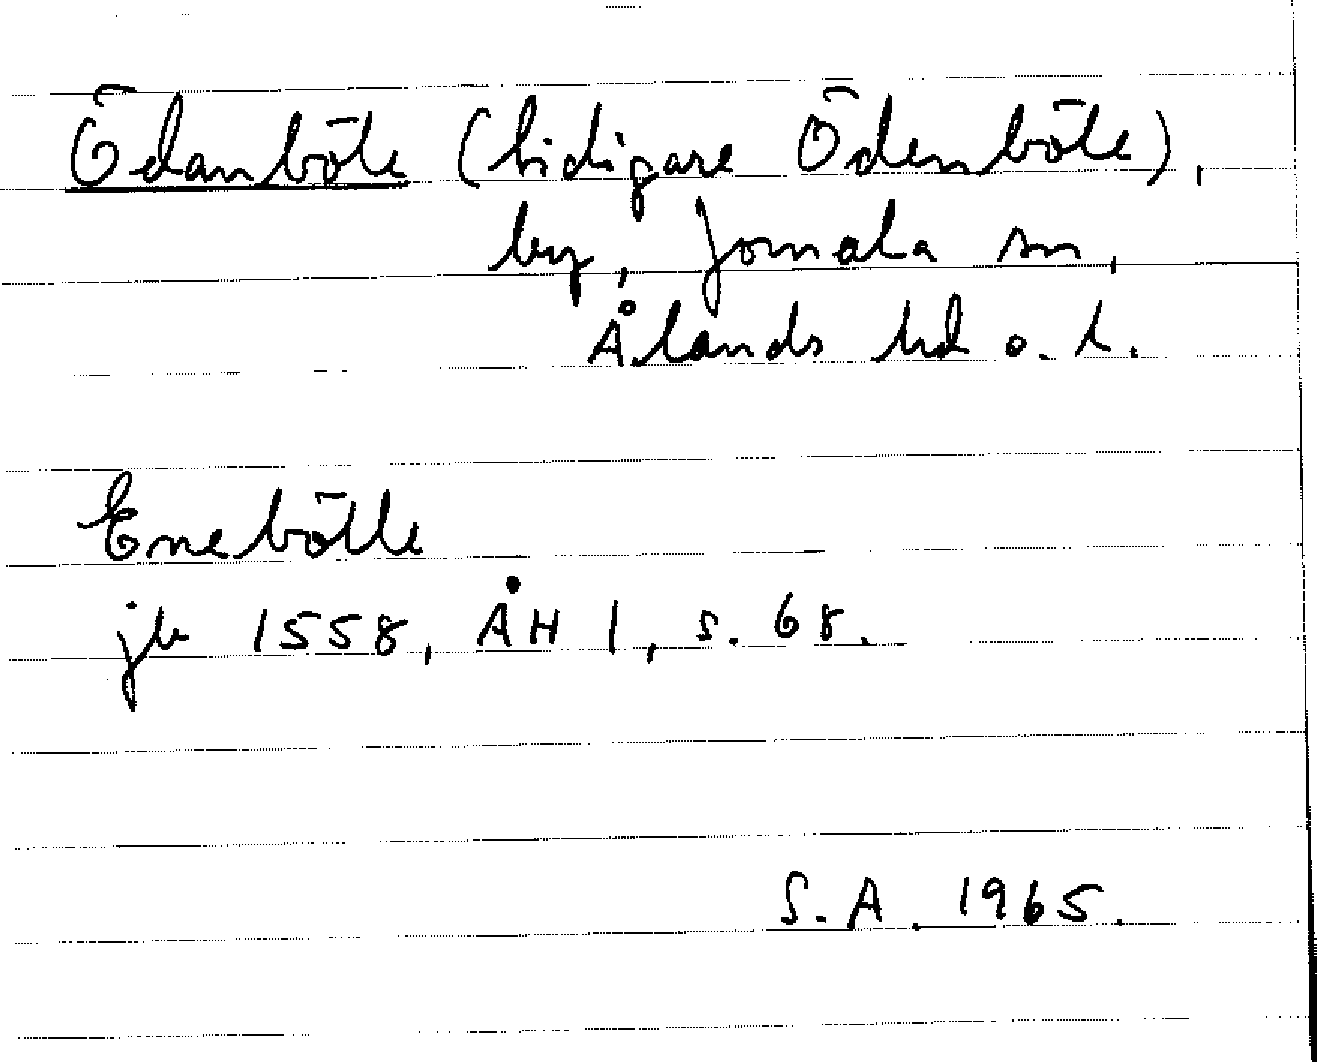 Ödanböle (tidigare Ödenböle),
by, Jomala sn,
Ålands hd o. l.
Enebölle
jb 1558, ÅH 1, s. 68.
S.A. 1965.